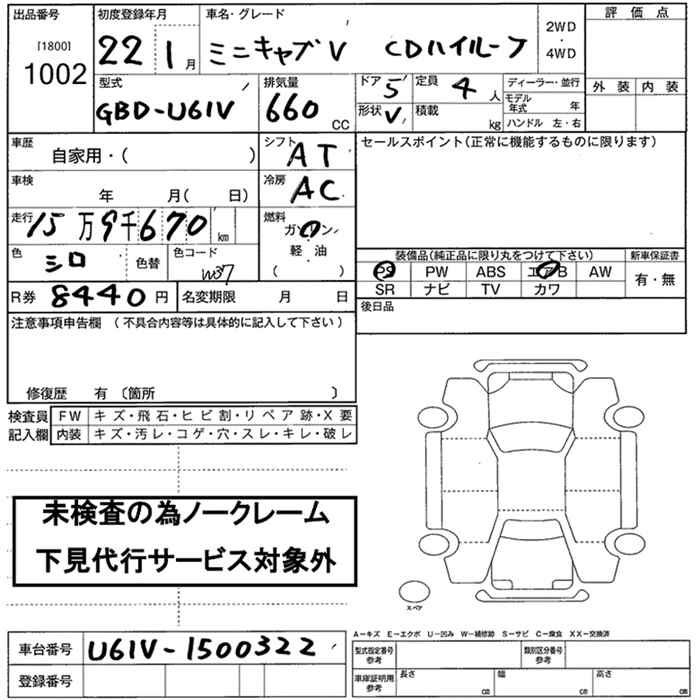 出品番号 初度登録年月 車名・グレード 2WD ・ 4WD 評価点
[1800] 1002 22 1月 ミニキャブV CDハイルーフ
型式 排気量 ドア 5 定員 4人 ディーラー・並行 外装 内装
GBD-U61V 660 CC 形状 V 積載 kg モデル年式 年
ハンドル 左・右
車歴 自家用・( ) シフト AT セールスポイント(正常に機能するものに限ります)
車検 年 月( 日) 冷房 AC
走行 15万9千670km 燃料 ガソリン
軽・油
( )
色 シロ 色替 色コード W37 装備品(純正品に限り丸をつけて下さい) 新車保証書
PS PW ABS エアB AW 有・無
R券 8440円 名変期限 月 日 SR ナビ TV カワ
後日品
注意事項申告欄 (不具合内容等は具体的に記入して下さい)
修復歴 有 〔箇所 〕
検査員 FW キズ・飛石・ヒビ割・リペア跡・X要
記入欄 内装 キズ・汚レ・コゲ・穴・スレ・キレ・破レ
未検査の為ノークレーム
下見代行サービス対象外
スペア
A-キズ E-エクボ U-凹み W-補修跡 S-サビ C-腐食 XX-交換済
車台番号 U61V-1500322 型式指定番号 参考 類別区分番号 参考
登録番号 車庫証明用 参考 長さ cm 幅 cm 高さ cm